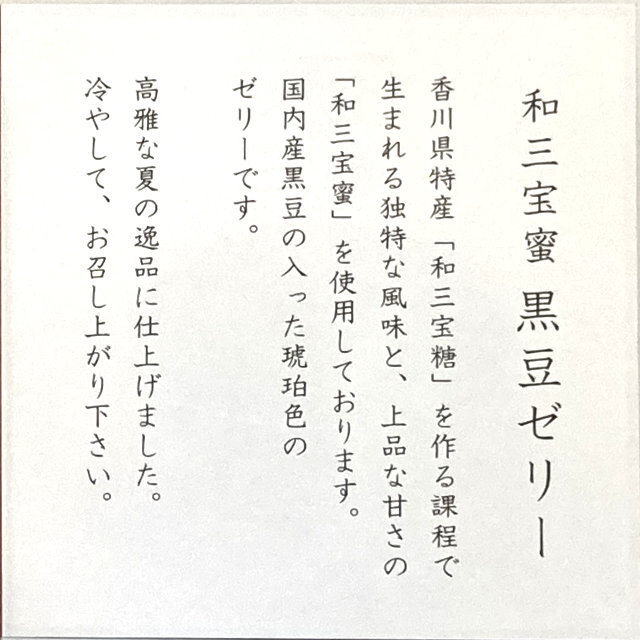 和三宝蜜 黒豆ゼリー
香川県特産「和三宝糖」を作る課程で
生まれる独特な風味と、上品な甘さの
「和三宝蜜」を使用しております。
国内産黒豆の入った琥珀色の
ゼリーです。
高雅な夏の逸品に仕上げました。
冷やして、お召し上がり下さい。